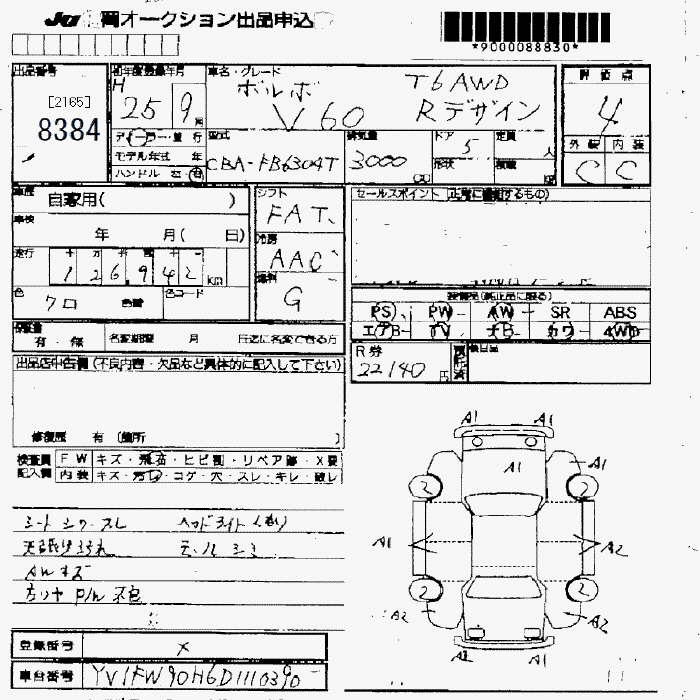 JU 岡オークション出品申込
*9000088830*
出品番号 初年度登録年月 車名・グレード 評価点
[2165]
8384
H 25 9 月
ボルボ T6 AWD
V60 Rデザイン
4
ディーラー・並行
モデル年式 年
ハンドル 左 右
型式 排気量 ドア 定員
CBA-FB6304T 3000 CC 5 人
形状 積載 kg
外装 内装
C C
車歴 自家用( )
車検 年 月( 日)
走行 十 万 千 百 十 一
126,942 km
色 クロ 色替 色コード
シフト
FAT
冷房
AAC
燃料
G
セールスポイント (正常に機能するもの)
装備品(純正品に限る)
PS PW AW SR ABS
エアB TV ナビ カワ 4WD
保証書 有・保 名変期限 月 日迄に名変できる方
R券 22140 円 預託済 検査員
出品店申告欄(不良内容・欠品など具体的に記入して下さい)
修復歴 有 (箇所 )
検査員 FW キズ・飛石・ヒビ割・リペア跡・X要
記入欄 内装 キズ・汚れ・コゲ・穴・スレ・キレ・破レ
シート シワ・スレ ヘッドライト
天張り汚れ
AWキズ
登録番号 ×
車台番号 YV1FW90H6D1110390
A1 A1
A1 A1
2 2
A1 A2
2 2
A2 A2
A1 A1